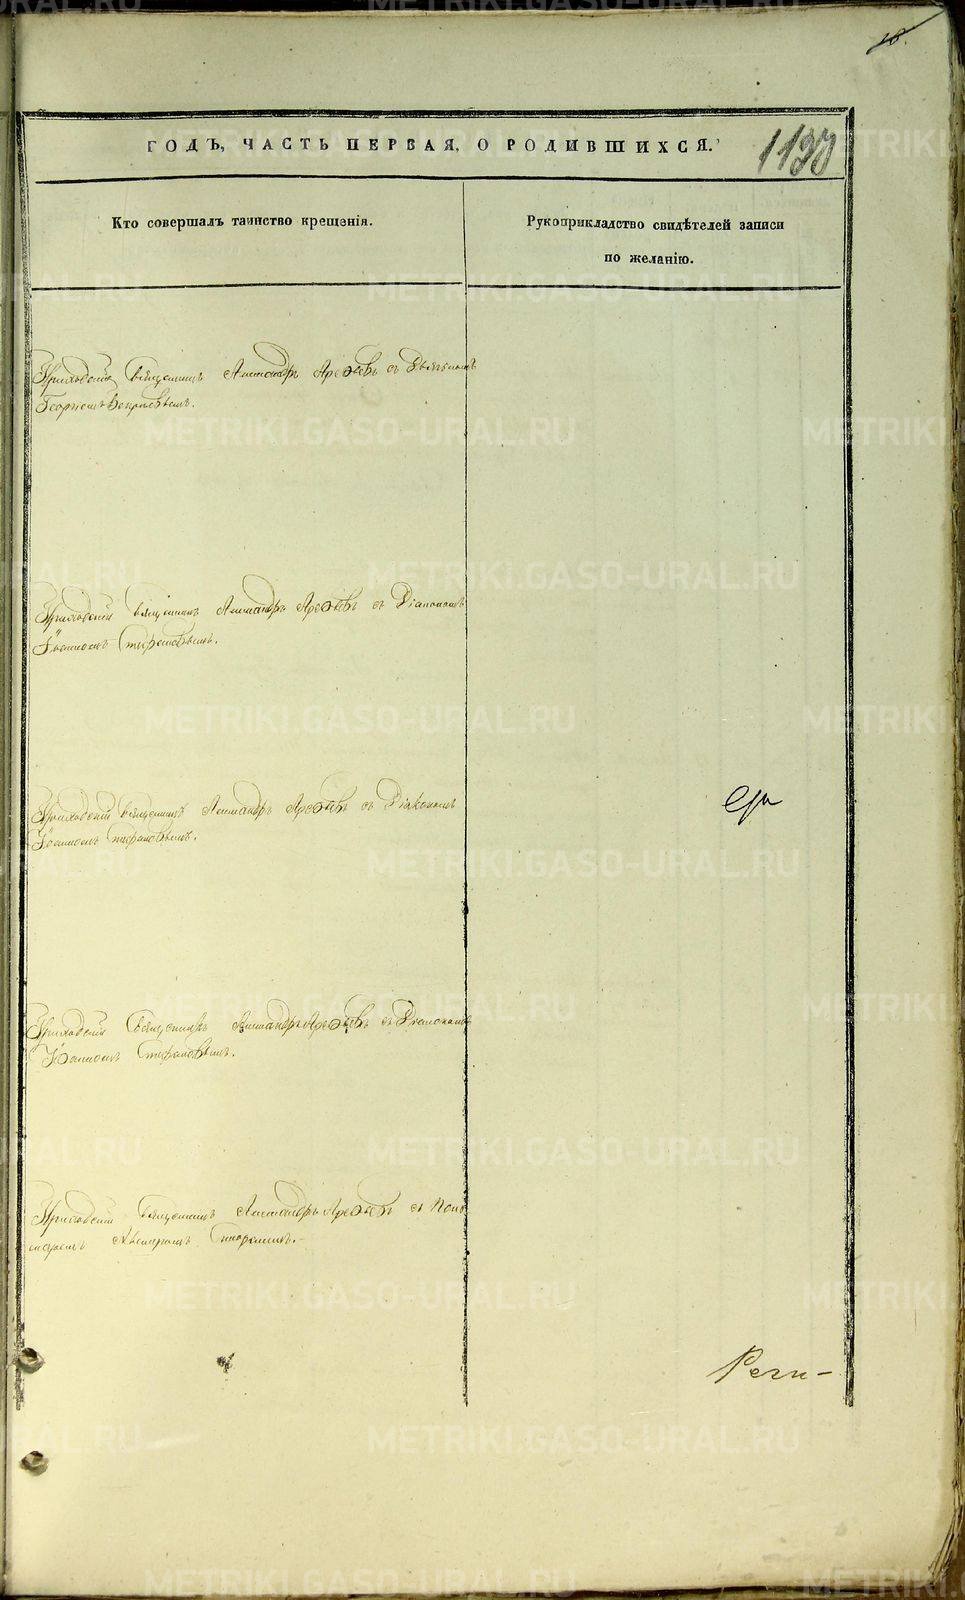 18.
ГОДЪ, ЧАСТЬ ПЕРВАЯ, О РОДИВШИХСЯ.
Кто совершалъ таинство крещенія.
Рукоприкладство свидѣтелей записи
по желанію.
Приходскій Священникъ Александръ Арефьевъ съ
Георгіемъ
Приходскій Священникъ Александръ Арефьевъ съ Діакономъ
Іоанномъ Стефановымъ.
Приходскій Священникъ Александръ Арефьевъ съ Діакономъ
Іоанномъ Стефановымъ.
Приходскій Священникъ Александръ Арефьевъ съ Діакономъ
Іоанномъ Стефановымъ.
Приходскій Священникъ Александръ Арефьевъ съ Поно-
маремъ
METRIKI.GASO-URAL.RU